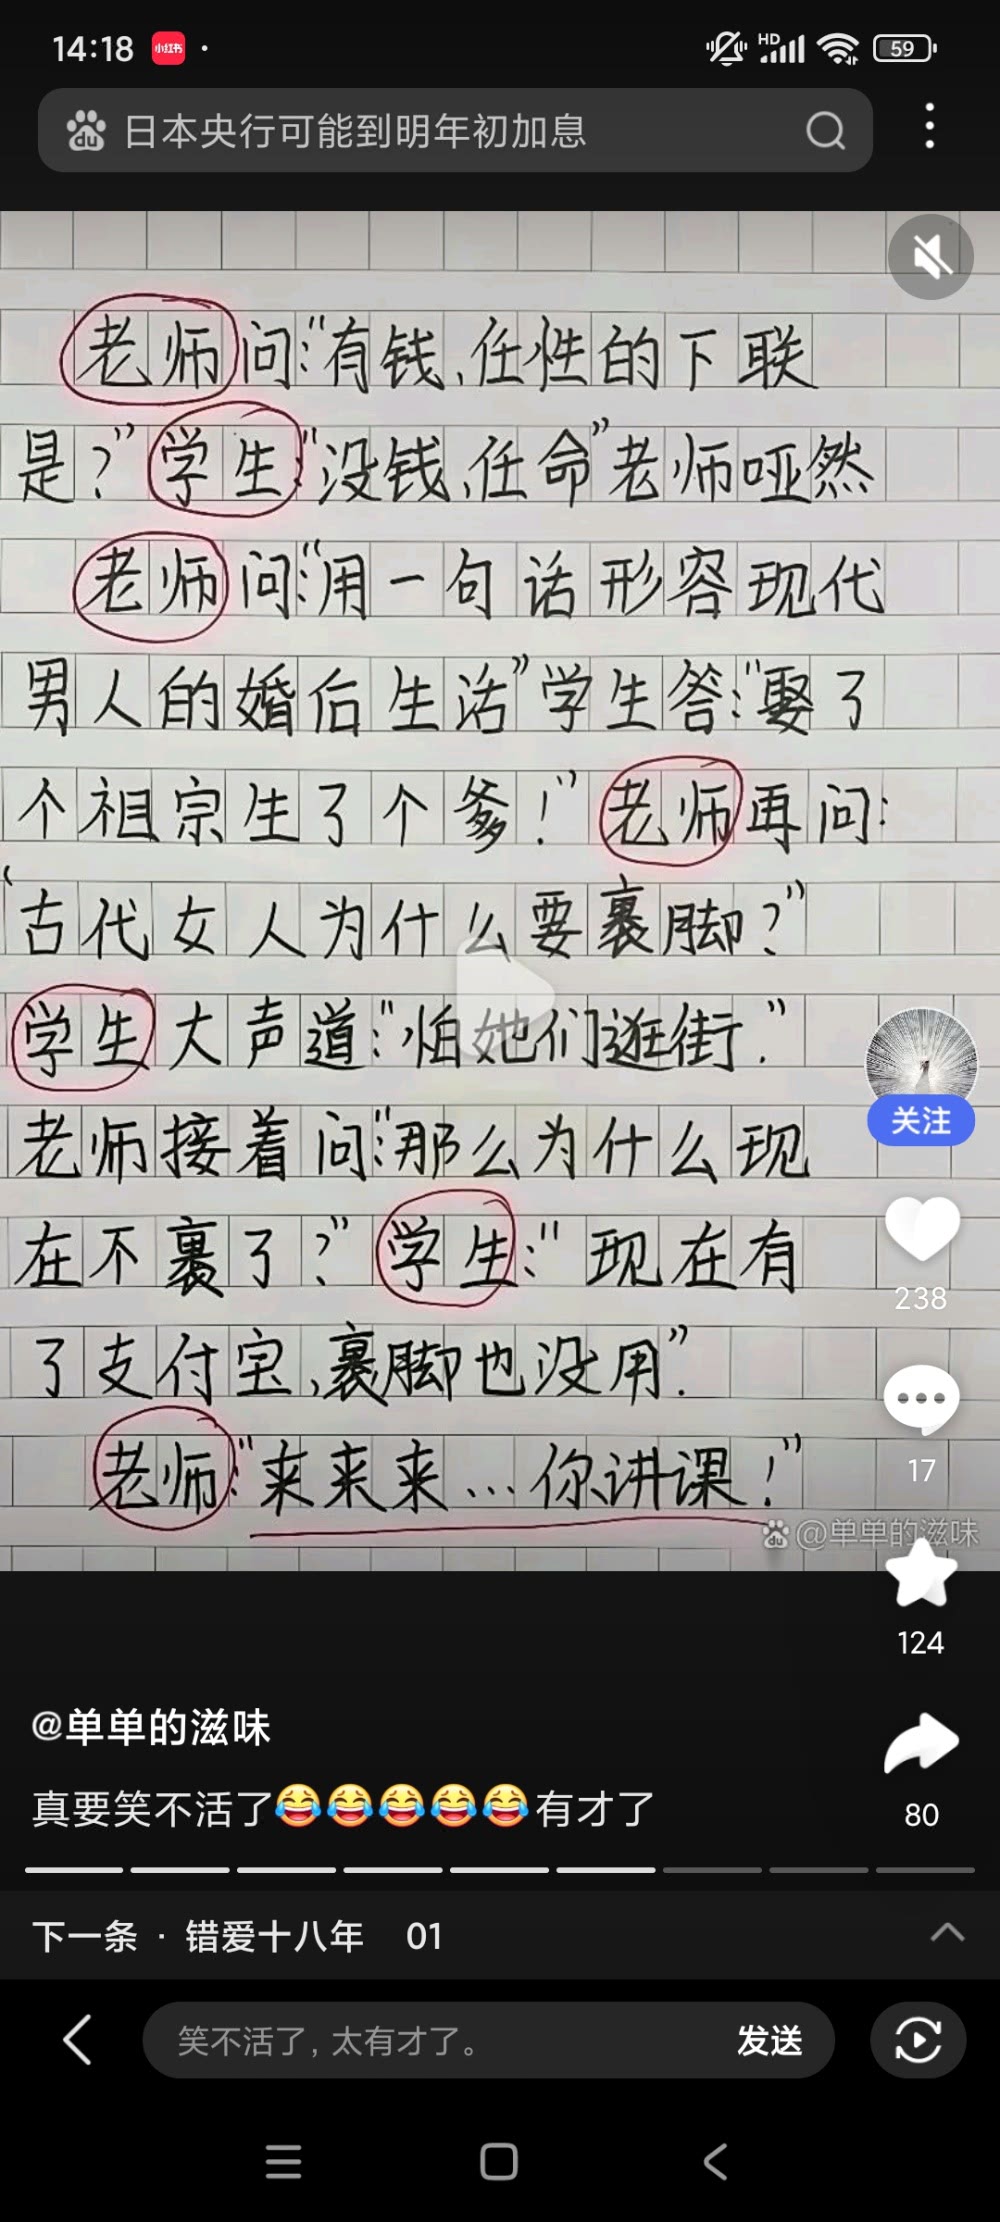 14:18 小红书 · HD 59
du 日本央行可能到明年初加息
老师问:“有钱,任性的下联
是?”学生:“没钱,任命”老师哑然
老师问:“用一句话形容现代
男人的婚后生活”学生答:“娶了
个祖宗生了个爹!”老师再问:
“古代女人为什么要裹脚?”
学生大声道:“怕她们逛街.”
老师接着问:“那么为什么现
在不裹了?”学生:“现在有
了支付宝,裹脚也没用”.
老师:“来来来...你讲课!”
du @单单的滋味
关注
238
17
124
80
@单单的滋味
真要笑不活了😂😂😂😂😂有才了
下一条 · 错爱十八年 01
笑不活了,太有才了。 发送